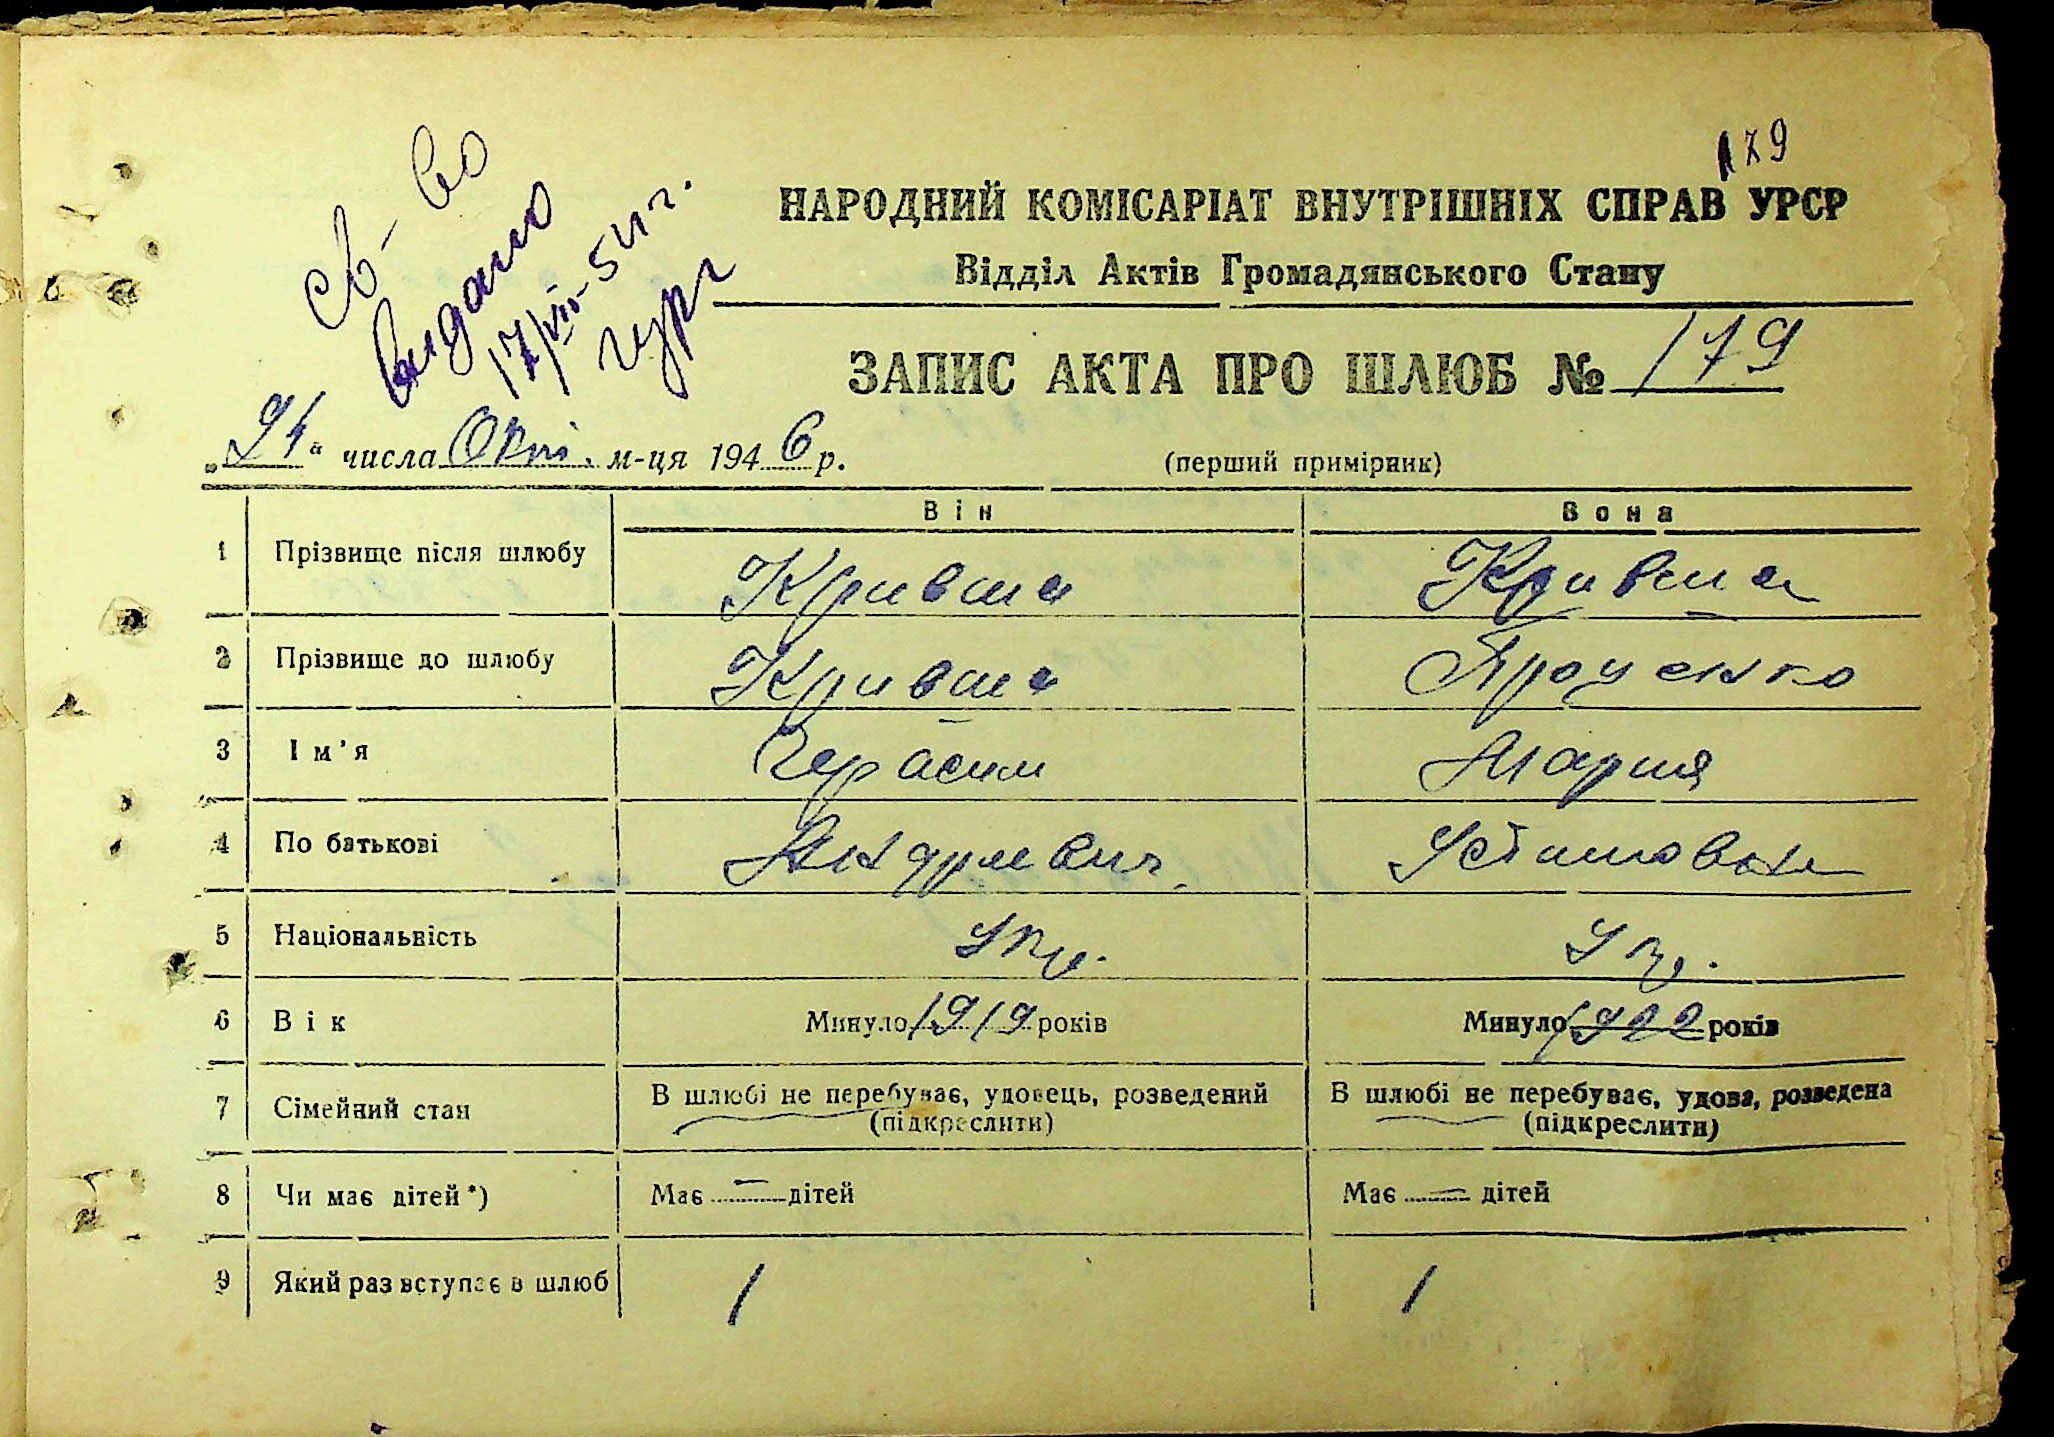 179
св-во
видано
17/VII-54 г.
НАРОДНИЙ КОМІСАРІАТ ВНУТРІШНІХ СПРАВ УРСР
Відділ Актів Громадянського Стану
ЗАПИС АКТА ПРО ШЛЮБ № 179
„24“ числа Окт. м-ця 1946 р. (перший примірник)
Він Вона
1 Прізвище після шлюбу Кривша Кривша
2 Прізвище до шлюбу Кривша Яроценко
3 Ім'я Герасим Мария
4 По батькові Андреевич Устимовна
5 Національність Укр. Укр.
6 Вік Минуло 1919 років Минуло 1922 років
7 Сімейний стан В шлюбі не перебуває, удовець, розведений В шлюбі не перебуває, удова, розведена
(підкреслити) (підкреслити)
8 Чи має дітей*) Має — дітей Має — дітей
9 Який раз вступає в шлюб 1 1